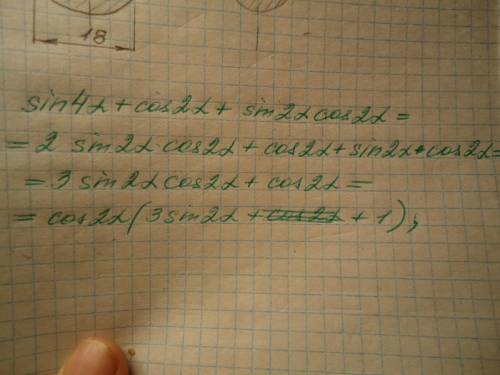 18
sin4α + cos2α + sin2αcos2α =
= 2 sin2α·cos2α + cos2α + sin2α·cos2α =
= 3 sin2αcos2α + cos2α =
= cos2α(3sin2α + cos2α + 1);